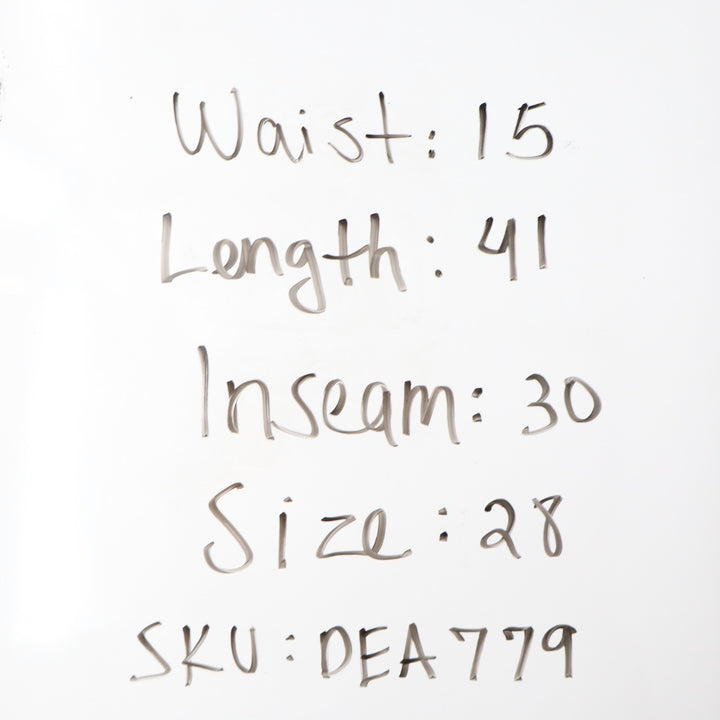 Waist: 15
Length: 41
Inseam: 30
Size: 28
SKU: DEA779